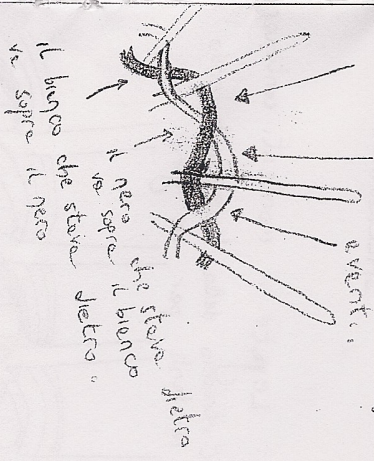 avanti..
il nero che stava dietro
va sopra il bianco
il bianco che stava dietro..
va sopra il nero